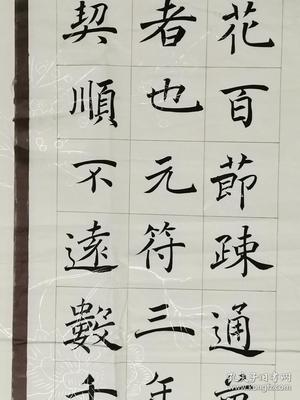 花百節疎通
者也元符三年
契順不遠數千
孔夫子旧书网